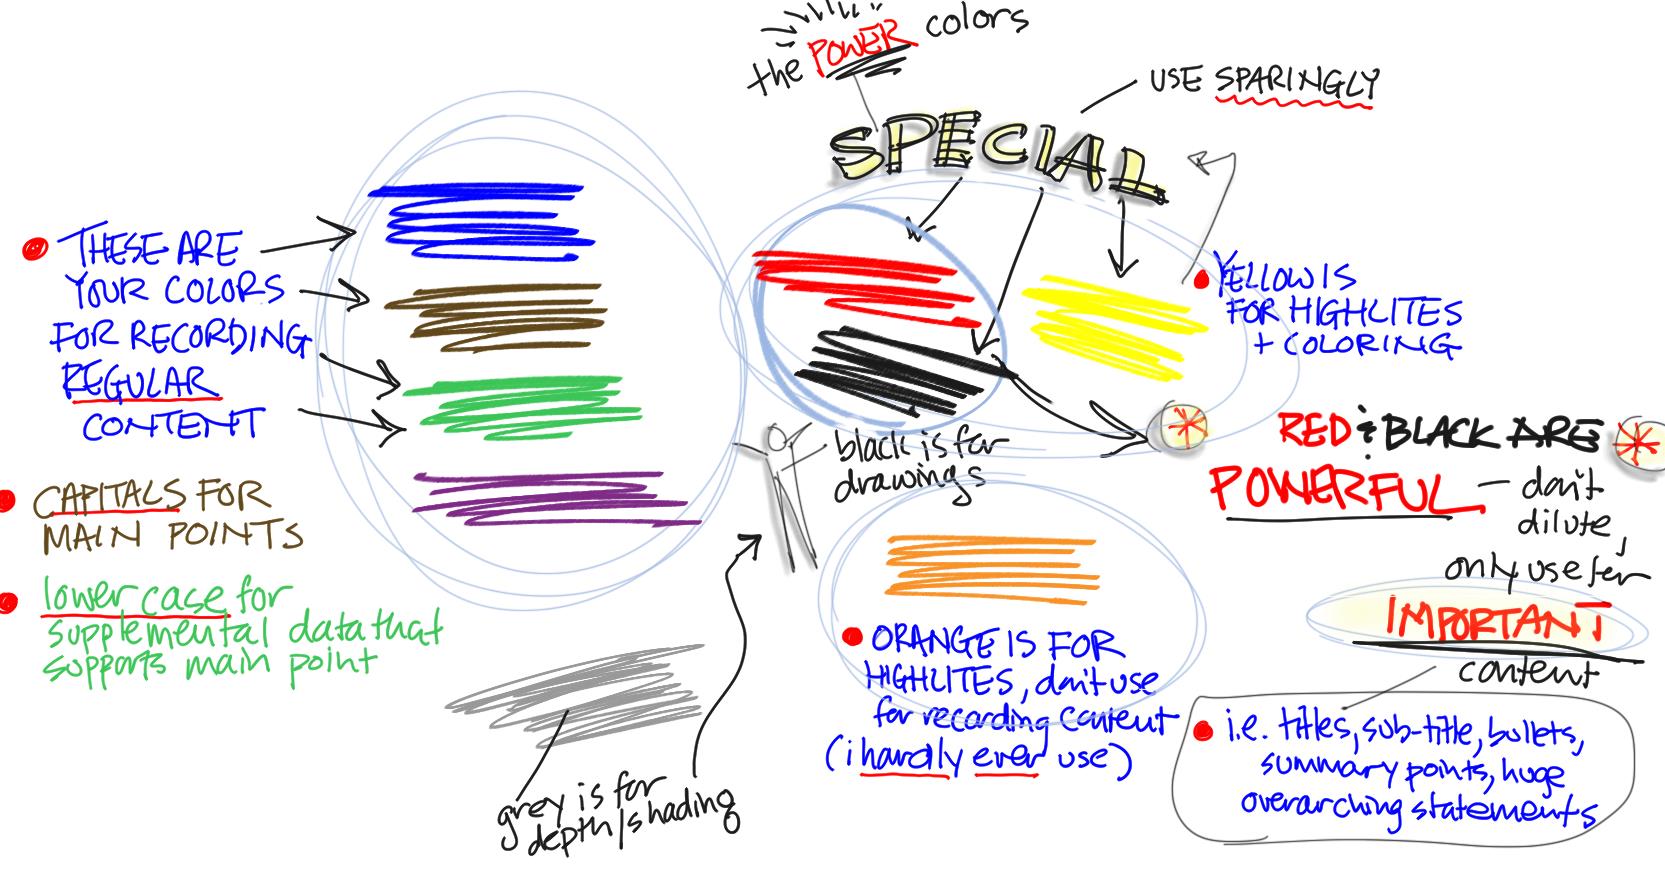 the POWER colors
SPECIAL
USE SPARINGLY
THESE ARE
YOUR COLORS
FOR RECORDING
REGULAR
CONTENT
CAPITALS FOR
MAIN POINTS
lower case for
supplemental data that
supports main point
YELLOW IS
FOR HIGHLITES
+ COLORING
black is for
drawings
RED & BLACK ARE
POWERFUL - don't
dilute,
only use for
IMPORTANT
content
i.e. titles, sub-title, bullets,
summary points, huge
overarching statements
ORANGE IS FOR
HIGHLITES, don't use
for recording content
(i hardly ever use)
grey is for
depth/shading